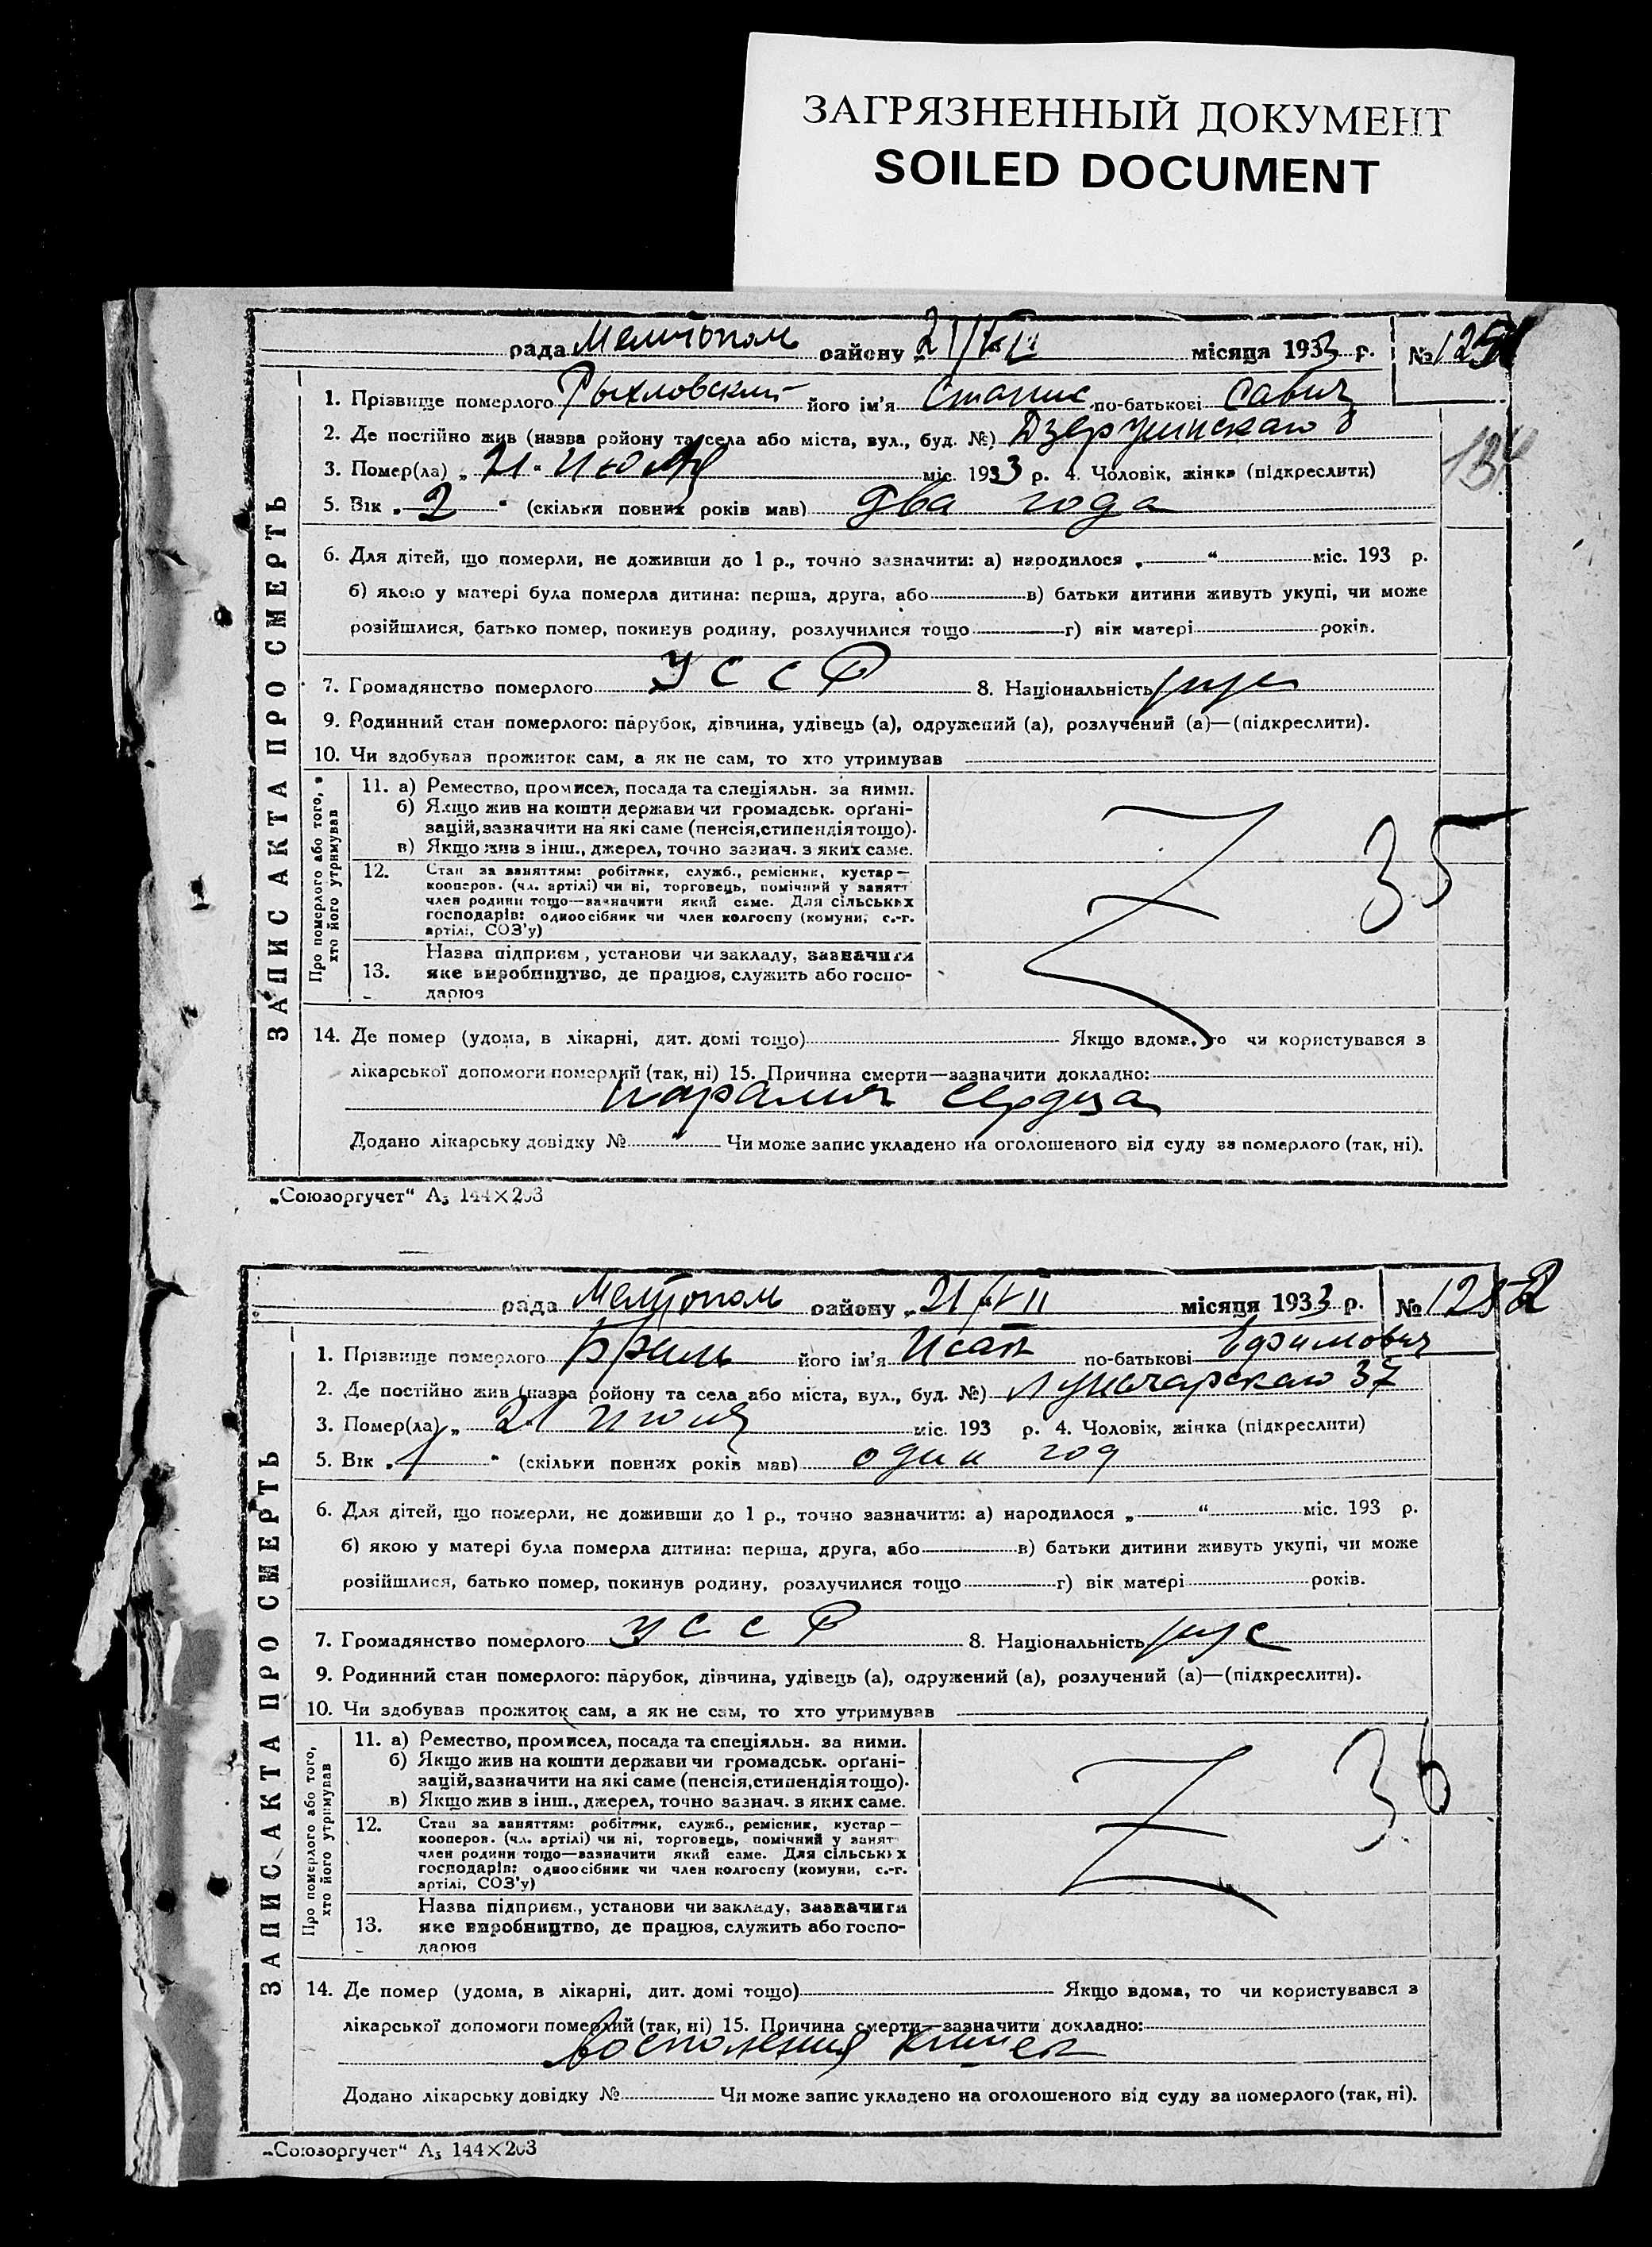 ЗАГРЯЗНЕННЫЙ ДОКУМЕНТ
SOILED DOCUMENT
рада Мелитополь району „21/VII місяця 1933 р. № 1251
134
ЗАПИС АКТА ПРО СМЕРТЬ
1. Прізвище померлого Рыхловский його ім'я Станис по-батькові савич
2. Де постійно жив (назва району та села або міста, вул., буд. №) Дзержинскаго 8
3. Помер(ла) „ 21 “ Июля міс. 1933 р. 4. Чоловік, жінка (підкреслити)
5. Вік „ 2 “ (скільки повних років мав) два года
6. Для дітей, що померли, не доживши до 1 р., точно зазначити: а) народилося „ “ міс. 193 р.
б) якою у матері була померла дитина: перша, друга, або в) батьки дитини живуть укупі, чи може
розійшлися, батько помер, покинув родину, розлучилися тощо г) вік матері років.
7. Громадянство померлого УССР 8. Національність рус
9. Родинний стан померлого: парубок, дівчина, удівець (а), одружений (а), розлучений (а)—(підкреслити).
10. Чи здобував прожиток сам, а як не сам, то хто утримував
Про померлого або того, хто його утримував
11. а) Ремество, промисел, посада та спеціяльн. за ними.
б) Якщо жив на кошти держави чи громадськ. орґані-
зацій, зазначити на які саме (пенсія, стипендія тощо).
в) Якщо жив з інш., джерел, точно зазнач. з яких саме.
35
12. Стан за заняттям: робітник, служб., ремісник, кустар—
кооперов. (чл. артілі) чи ні, торговець, помічний у занятт
член родини тощо—зазначити який саме. Для сільських
господарів: одноосібник чи член колгоспу (комуни, с.-г.
артілі, СОЗ'у)
13. Назва підприєм., установи чи закладу, зазначити
яке виробництво, де працює, служить або госпо-
дарює
14. Де помер (удома, в лікарні, дит. домі тощо) Якщо вдома, то чи користувався з
лікарської допомоги померлий (так, ні) 15. Причина смерти—зазначити докладно:
паралич сердца
Додано лікарську довідку № Чи може запис укладено на оголошеного від суду за померлого (так, ні).
„Союзоргучет“ А₃ 144×203
рада Мелитополь району „21/VII місяця 1933 р. № 1252
ЗАПИС АКТА ПРО СМЕРТЬ
1. Прізвище померлого Бриль його ім'я Исак по-батькові Ефимович
2. Де постійно жив (назва району та села або міста, вул., буд. №) Луначарскаго 37
3. Помер(ла) „ 21 июля міс. 193 р. 4. Чоловік, жінка (підкреслити)
5. Вік „ 1 “ (скільки повних років мав) один год
6. Для дітей, що померли, не доживши до 1 р., точно зазначити: а) народилося „ “ міс. 193 р.
б) якою у матері була померла дитина: перша, друга, або в) батьки дитини живуть укупі, чи може
розійшлися, батько помер, покинув родину, розлучилися тощо г) вік матері років.
7. Громадянство померлого УССР 8. Національність рус
9. Родинний стан померлого: парубок, дівчина, удівець (а), одружений (а), розлучений (а)—(підкреслити).
10. Чи здобував прожиток сам, а як не сам, то хто утримував
Про померлого або того, хто його утримував
11. а) Ремество, промисел, посада та спеціяльн. за ними.
б) Якщо жив на кошти держави чи громадськ. орґані-
зацій, зазначити на які саме (пенсія, стипендія тощо).
в) Якщо жив з інш., джерел, точно зазнач. з яких саме.
36
12. Стан за заняттям: робітник, служб., ремісник, кустар—
кооперов. (чл. артілі) чи ні, торговець, помічний у занят
член родини тощо—зазначити який саме. Для сільських
господарів: одноосібник чи член колгоспу (комуни, с.-г.
артілі, СОЗ'у)
13. Назва підприєм., установи чи закладу, зазначити
яке виробництво, де працює, служить або госпо-
дарює
14. Де помер (удома, в лікарні, дит. домі тощо) Якщо вдома, то чи користувався з
лікарської допомоги померлий (так, ні) 15. Причина смерти—зазначити докладно:
восполения кишек
Додано лікарську довідку № Чи може запис укладено на оголошеного від суду за померлого (так, ні).
„Союзоргучет“ А₃ 144×203